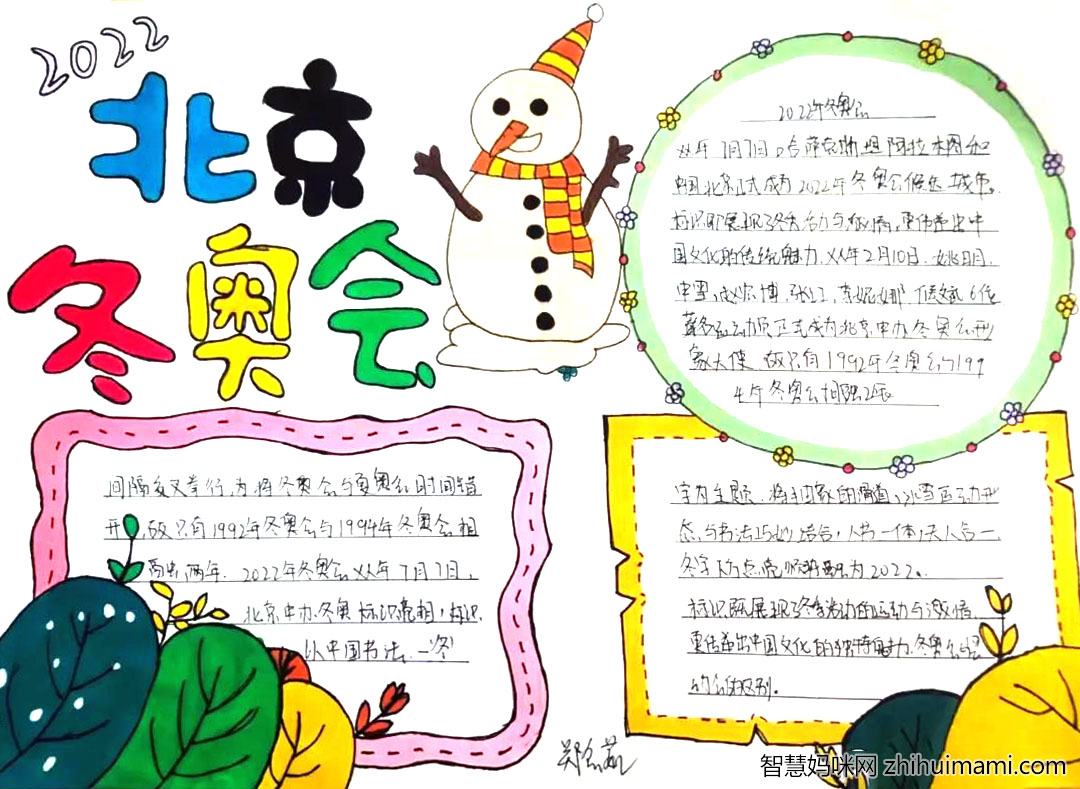 2022
北京
冬奥会
2022年冬奥会
从年7月7日。哈萨克斯坦阿拉木图和
中国北京正式成为2022年冬奥会候选城市。
标识即展现了冬 力与激情,更传递出中
国文化的传统魅力.从年2月10日.姚明,
申雪,赵宏博,张虹,李妮娜 6位
著名运动员正式成为北京申办冬奥会形
象大使 故只有1992年冬奥会与199
4年冬奥会相隔2年
间隔 又举行,为将冬奥会与夏奥会时间错
开,故只有1992年冬奥会与1994年冬奥会相
隔 两年.2022年冬奥会从年7月7日,
北京申办.冬奥标识亮相,标识
以中国书法.一"冬"
字为主题,将 的滑道,冰雪运动形
态,与书法巧妙结合,人书一体,天人合一,
冬字下方点 为2022。
标识既展现了冬季 动的运动与激情
更传递出中国文化的独特魅力.冬奥会
的 级别。
郑
智慧妈咪网 zhihuimami.com